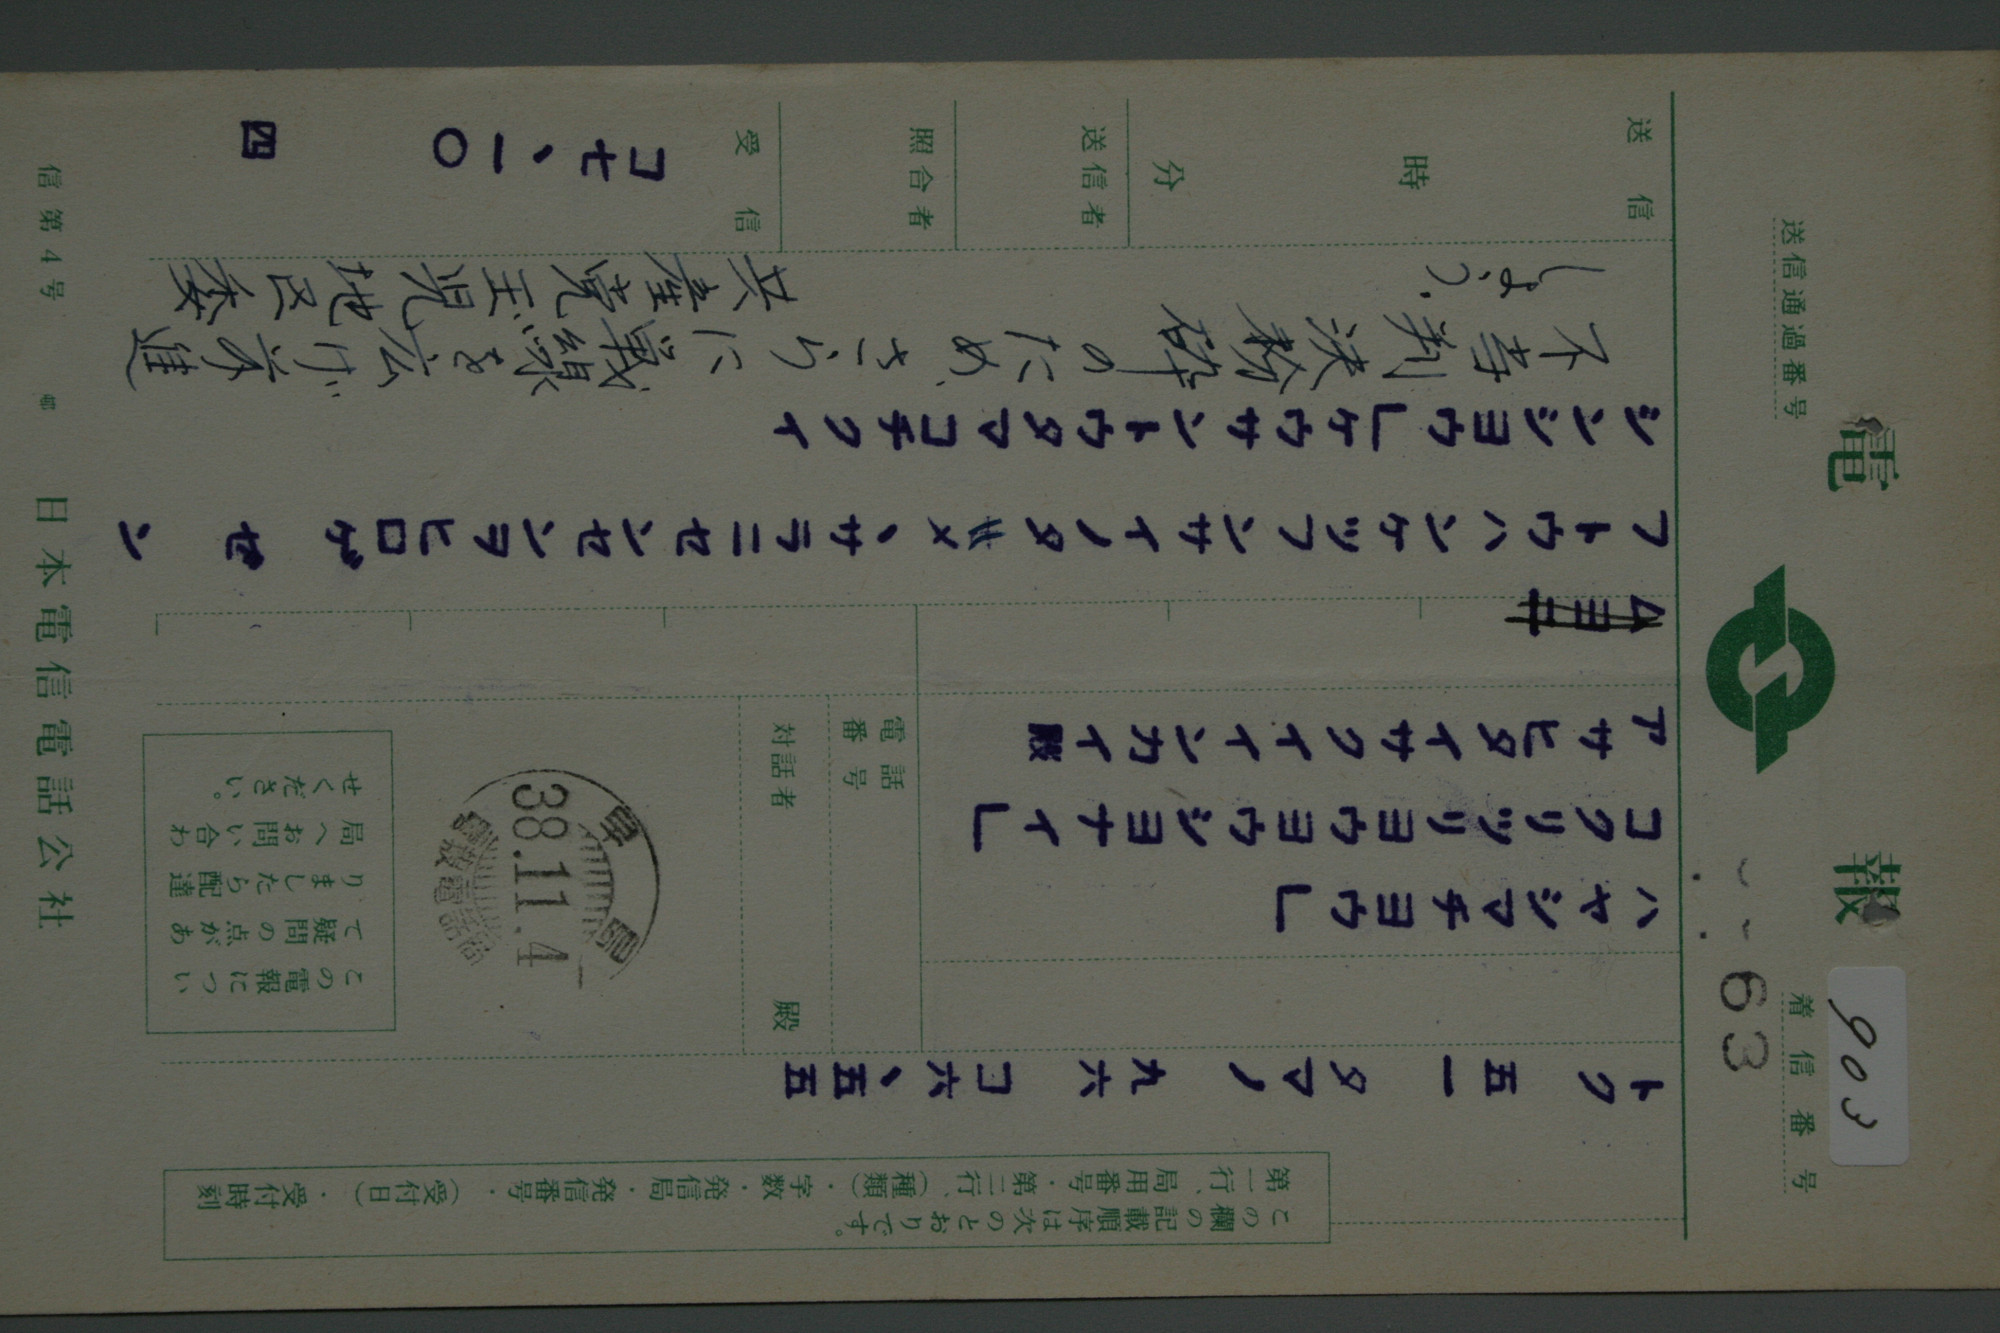 電報
着信番号
903
63
送信通過番号
この欄の記載順序は次のとおりです。
第一行、局用番号・第二行、(種類)・字数・発信局・発信番号・(受付日)・受付時刻
トク 五一 タマノ 九六 コ六、五五
ハヤシマチヨウ」
コクリツリヨウヨウシヨナイ」
アサヒタイサクイインカイ殿
電話番号
対話者 殿
早島
38.11.4
この電報につい
て疑問の点があ
りましたら、配達
局へお問い合わ
せください。
フトウハンケツフンサイノタメ、サラニセンセンヲヒロゲ ゼン
シンシヨウ」ケウサントウタマコチクイ
不等判決粉砕のため、さらに戦線を広げ前進
しよう。
共産党玉児地区委
送信
時
分
送信者
照合者
受信
コ七、一〇 四
信第4号
日本電信電話公社